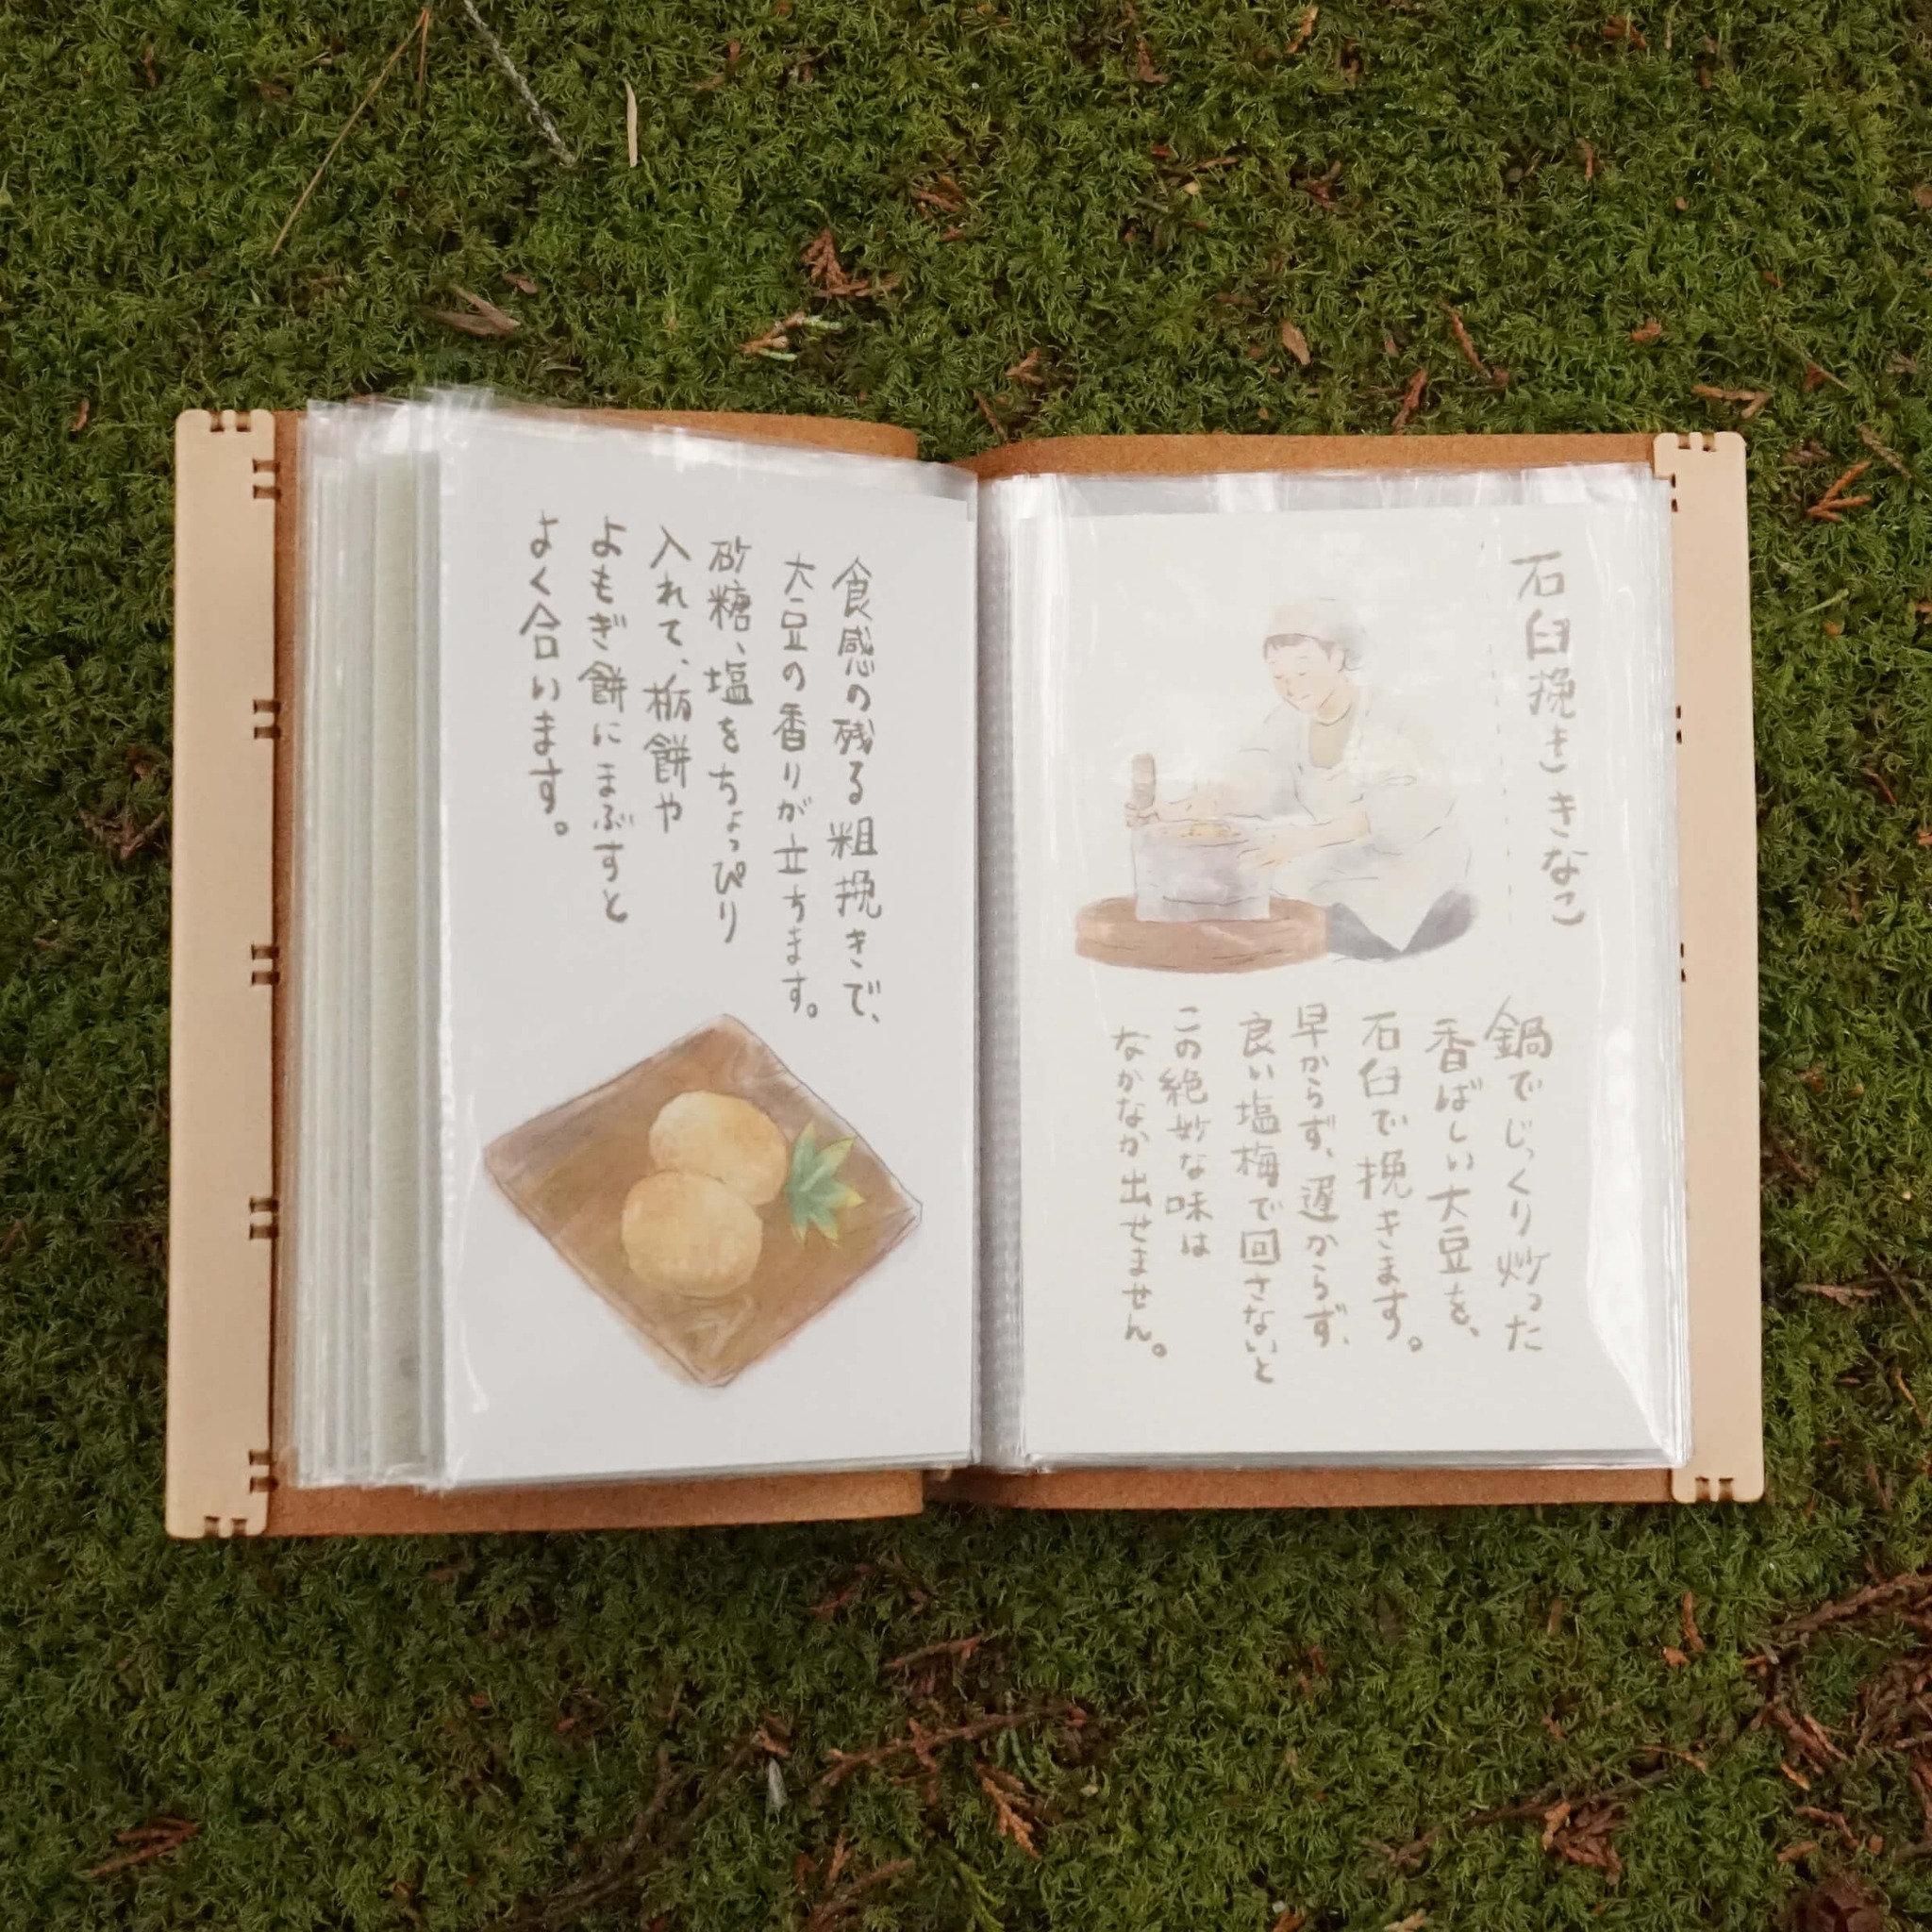 石臼挽ききなこ
鍋でじっくり炒った
香ばしい大豆を、
石臼で挽きます。
早からず、遅からず、
良い塩梅で回さないと
この絶妙な味は
なかなか出せません。
食感の残る粗挽きで、
大豆の香りが立ちます。
砂糖、塩をちょっぴり
入れて、栃餅や
よもぎ餅にまぶすと
よく合います。